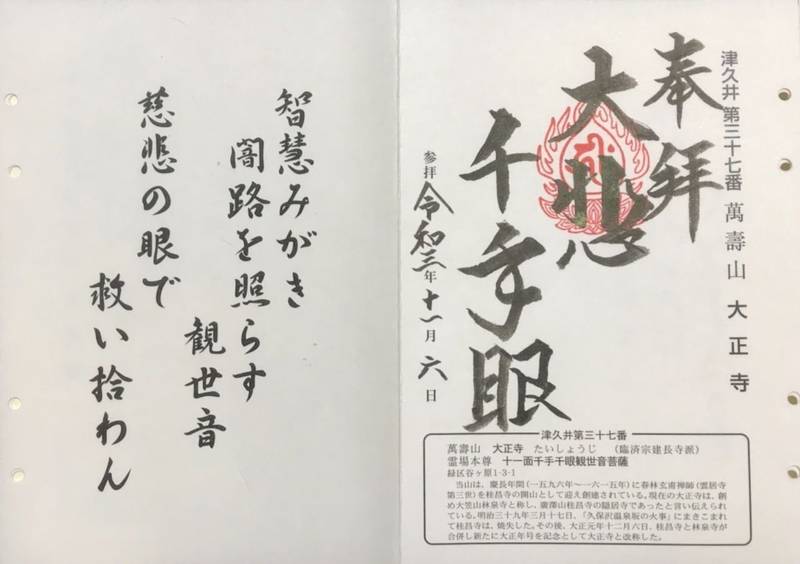 津久井 第三十七番 萬壽山 大正寺
奉拝
大悲
千手眼
参拝 令和三年十一月六日
津久井第三十七番
萬壽山 大正寺 たいしょうじ (臨済宗建長寺派)
霊場本尊 十一面千手千眼観世音菩薩
緑区谷ヶ原1-3-1
当山は、慶長年間(一五九六年〜一六一五年)に春林玄甫禅師(雲居寺
第三世)を桂昌寺の開山として迎え創建されている。現在の大正寺は、創
め大笠山林泉寺と称し、廣澤山桂昌寺の隠居寺であったと言い伝えられ
ている。明治三十九年三月十七日、「久保沢温泉坂の火事」にまきこまれ
て桂昌寺は、焼失した。その後、大正元年十二月六日、桂昌寺と林泉寺が
合併し新たに大正年号を記念として大正寺と改称した。
智慧みがき
闇路を照らす
観世音
慈悲の眼で
救い拾わん